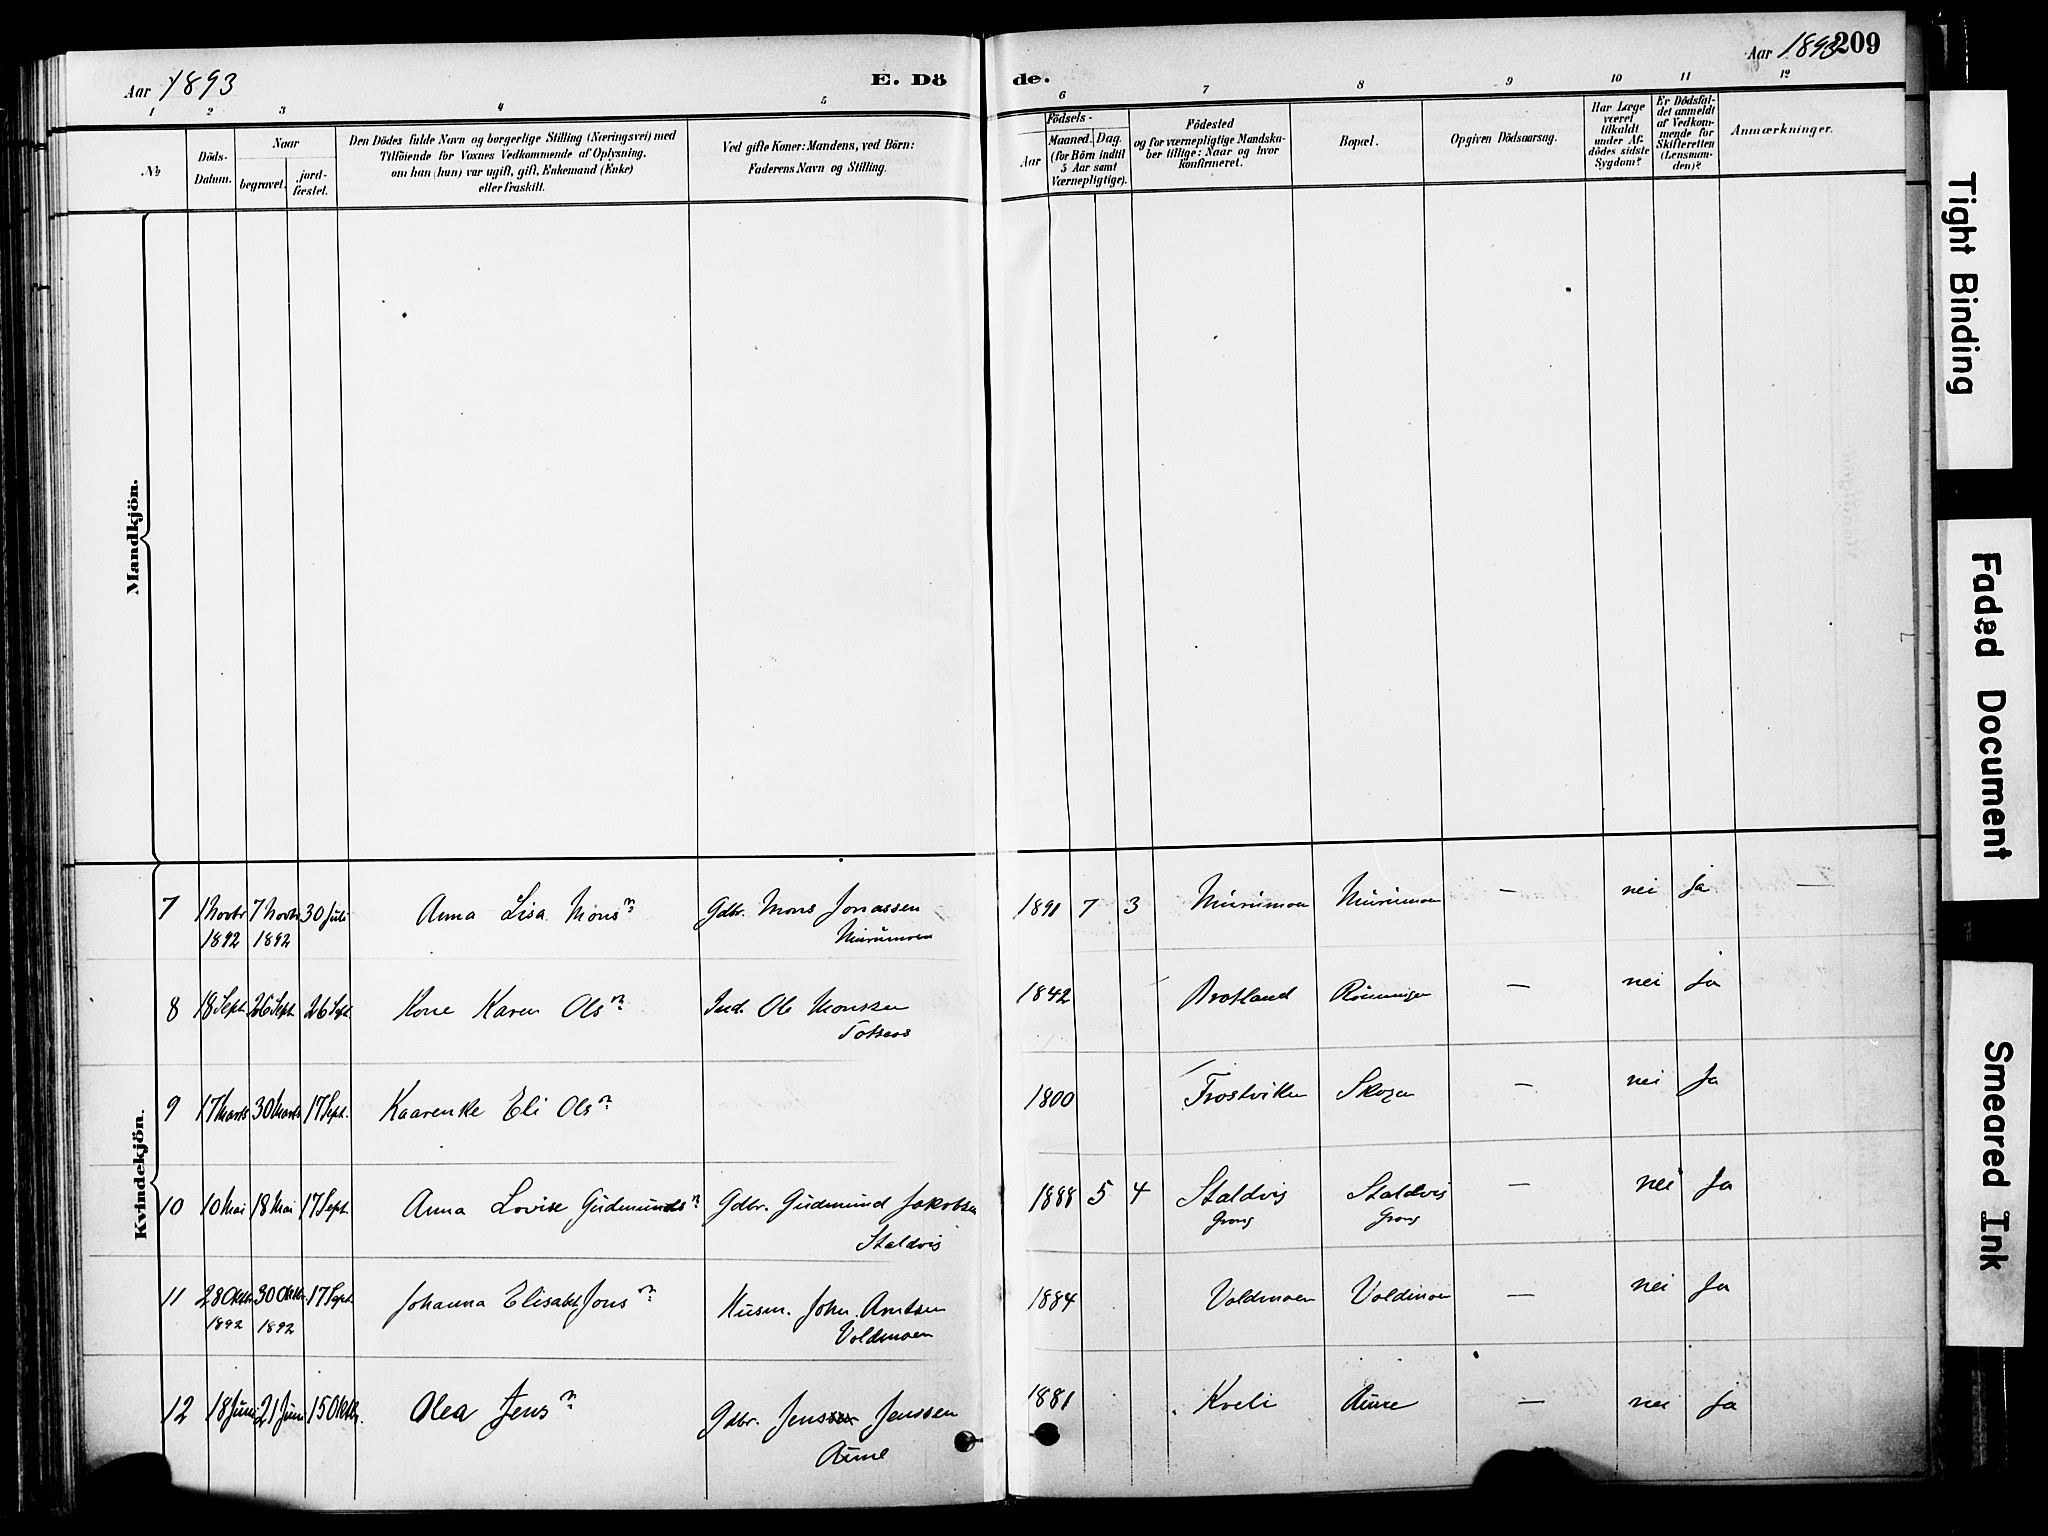 Aar 1893
E. Dö
de.
Aar 1893 209
1 2 3 4 5 6 7 8 9 10 11 12
No
Döds-
Datum.
Naar
begravet.
jord-
fæstet.
Den Dödes fulde Navn og borgerlige Stilling (Næringsvei) med
Tilföiende for Voxnes Vedkommende af Oplysning,
om han (hun) var ugift, gift, Enkemand (Enke)
eller fraskilt.
Ved gifte Koner: Mandens, ved Börn:
Faderens Navn og Stilling.
Födsels-
Aar
Maaned. Dag.
(for Börn indtil
5 Aar samt
Værnepligtige).
Födested
og for værnepligtige Mandska-
ber tillige: Naar og hvor
konfirmeret.
Bopæl.
Opgiven Dödsaarsag.
Har Læge
været
tilkaldt
under Af-
dödes sidste
Sygdom?
Er Dödsfal-
det anmeldt
af Vedkom-
mende for
Skifteretten
(Lensman-
den)?
Anmærkninger.
Mandkjön.
Kvindekjön.
7 1 Novbr 7 Novbr 30 Juli Anna Lisa Monsn Gdbr. Mons Jonassen 1891 7 3 Murumoen Murumoen — nei Ja —
1892 1892 Murumoen
8 18 Sept. 26 Sept. 26 Sept Kone Karen Olsn Ind. Ole Monssen 1842 Brotland Rönningen — nei Ja
9 17 Marts 30 Marts 17 Sept. Kaarenke Eli Olsn 1800 Frostviken Skogen — nei Ja
10 10 Mai 18 Mai 17 Sept. Anna Lovise Gudmundsn Gdbr. Gudmund Jakobsen 1888 5 4 Staldvig Staldvig — nei Ja
Staldvig Grong Grong
11 28 Oktbr 30 Oktbr. 17 Sept. Johanna Elisabet Jonsn Husm. John Arntsen 1884 Voldmoen Voldmoen — nei Ja
1892 1892 Voldmoen
12 18 Juni 21 Juni 15 Oktbr. Olea Jensn Gdbr. Jenssen Jenssen 1881 Kveli Aune — nei Ja
Aune
Tight Binding
Faded Document
Smeared Ink